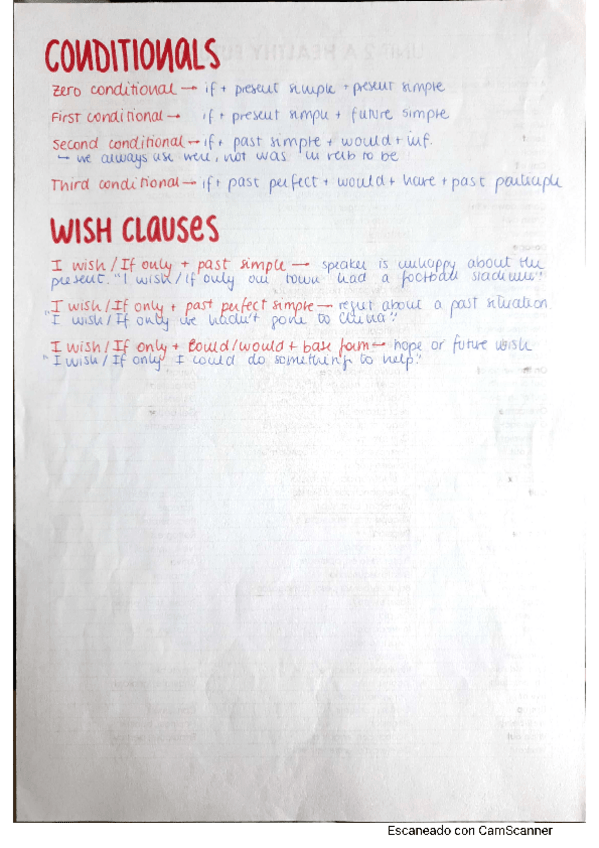 CONDITIONALS
Zero conditional → if + present simple + present simple
First conditional → if + present simple + future simple
Second conditional → if + past simple + would + inf.
↳ we always use were, not was in verb to be
Third conditional → if + past perfect + would + have + past participle
WISH CLAUSES
I wish / If only + past simple → speaker is unhappy about the
present. "I wish / If only our town had a football stadium"
I wish / If only + past perfect simple → regret about a past situation
"I wish / If only we hadn't gone to China"
I wish / If only + could/would + base form → hope or future wish
"I wish / If only I could do something to help."
Escaneado con CamScanner